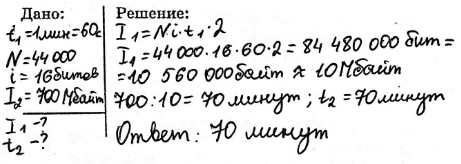 Дано:
t₁=1мин=60с
N=44000
i=16битов
I₂=700Мбайт
I₁-?
t₂-?
Решение:
I₁=N·i·t₁·2
I₁=44000·16·60·2=84 480 000бит=
=10 560 000байт ≈ 10Мбайт
700:10=70минут; t₂=70минут
Ответ: 70 минут